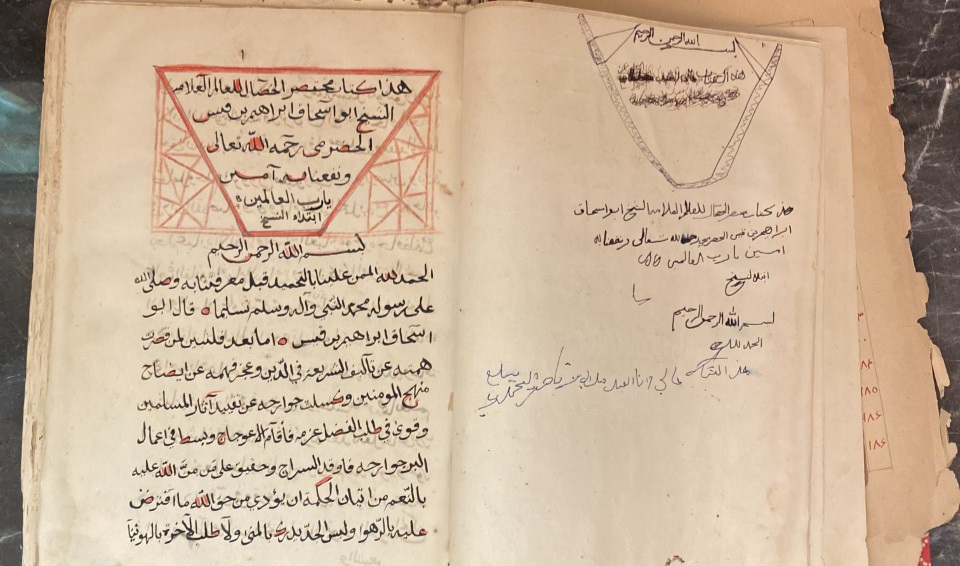 ١
هذا كتاب مختصر الخصال للعالم العلامه
الشيخ ابو اسحاق ابراهيم بن قيس
الحضرمي رحمه الله تعالى
ونفعنا به آمين
يا رب العالمين
ابتداء النسخ
بسم الله الرحمن الرحيم
الحمد لله الممن علينا بالتحميد قبل معرفتنا به وصلى الله
على رسوله محمد النبي وآله وسلم تسليما قال ابو
اسحاق ابراهيم بن قيس اما بعد فلئن لمن قصرت
همته عن تآليف الشريعة في الدين وعجز فهمه عن ايضاح
منهج المومنين وكسلت جوارحه عن تقييد آثار المسلمين
وقوي في طلب الفضل عزمه فأقام الاعوجاج وبسط في اعمال
البر جوارحه فاوقد السراج وحقيق على من منّ الله عليه
بالتعم من اتيان الحكمة ان يؤدي من حق الله ما افترض
عليه بالرهوا وليس الجد يدرك بالمنى ولا طلب الآخرة بالهوينا
والتنعم
١
بسم الله الرحمن الرحيم
هذا الكتاب
هذا كتاب مختصر الخصال للعالم العلامه الشيخ ابو اسحاق
ابراهيم بن قيس الحضرمي رحمه الله تعالى ونفعنا به
امين يا رب العالمين
ابتداء النسخ
يا
بسم الله الرحمن الرحيم
الحمد لله
هذا الكتاب مالي وانا العبد لله
١٨٥
١٨٦
١٨٦